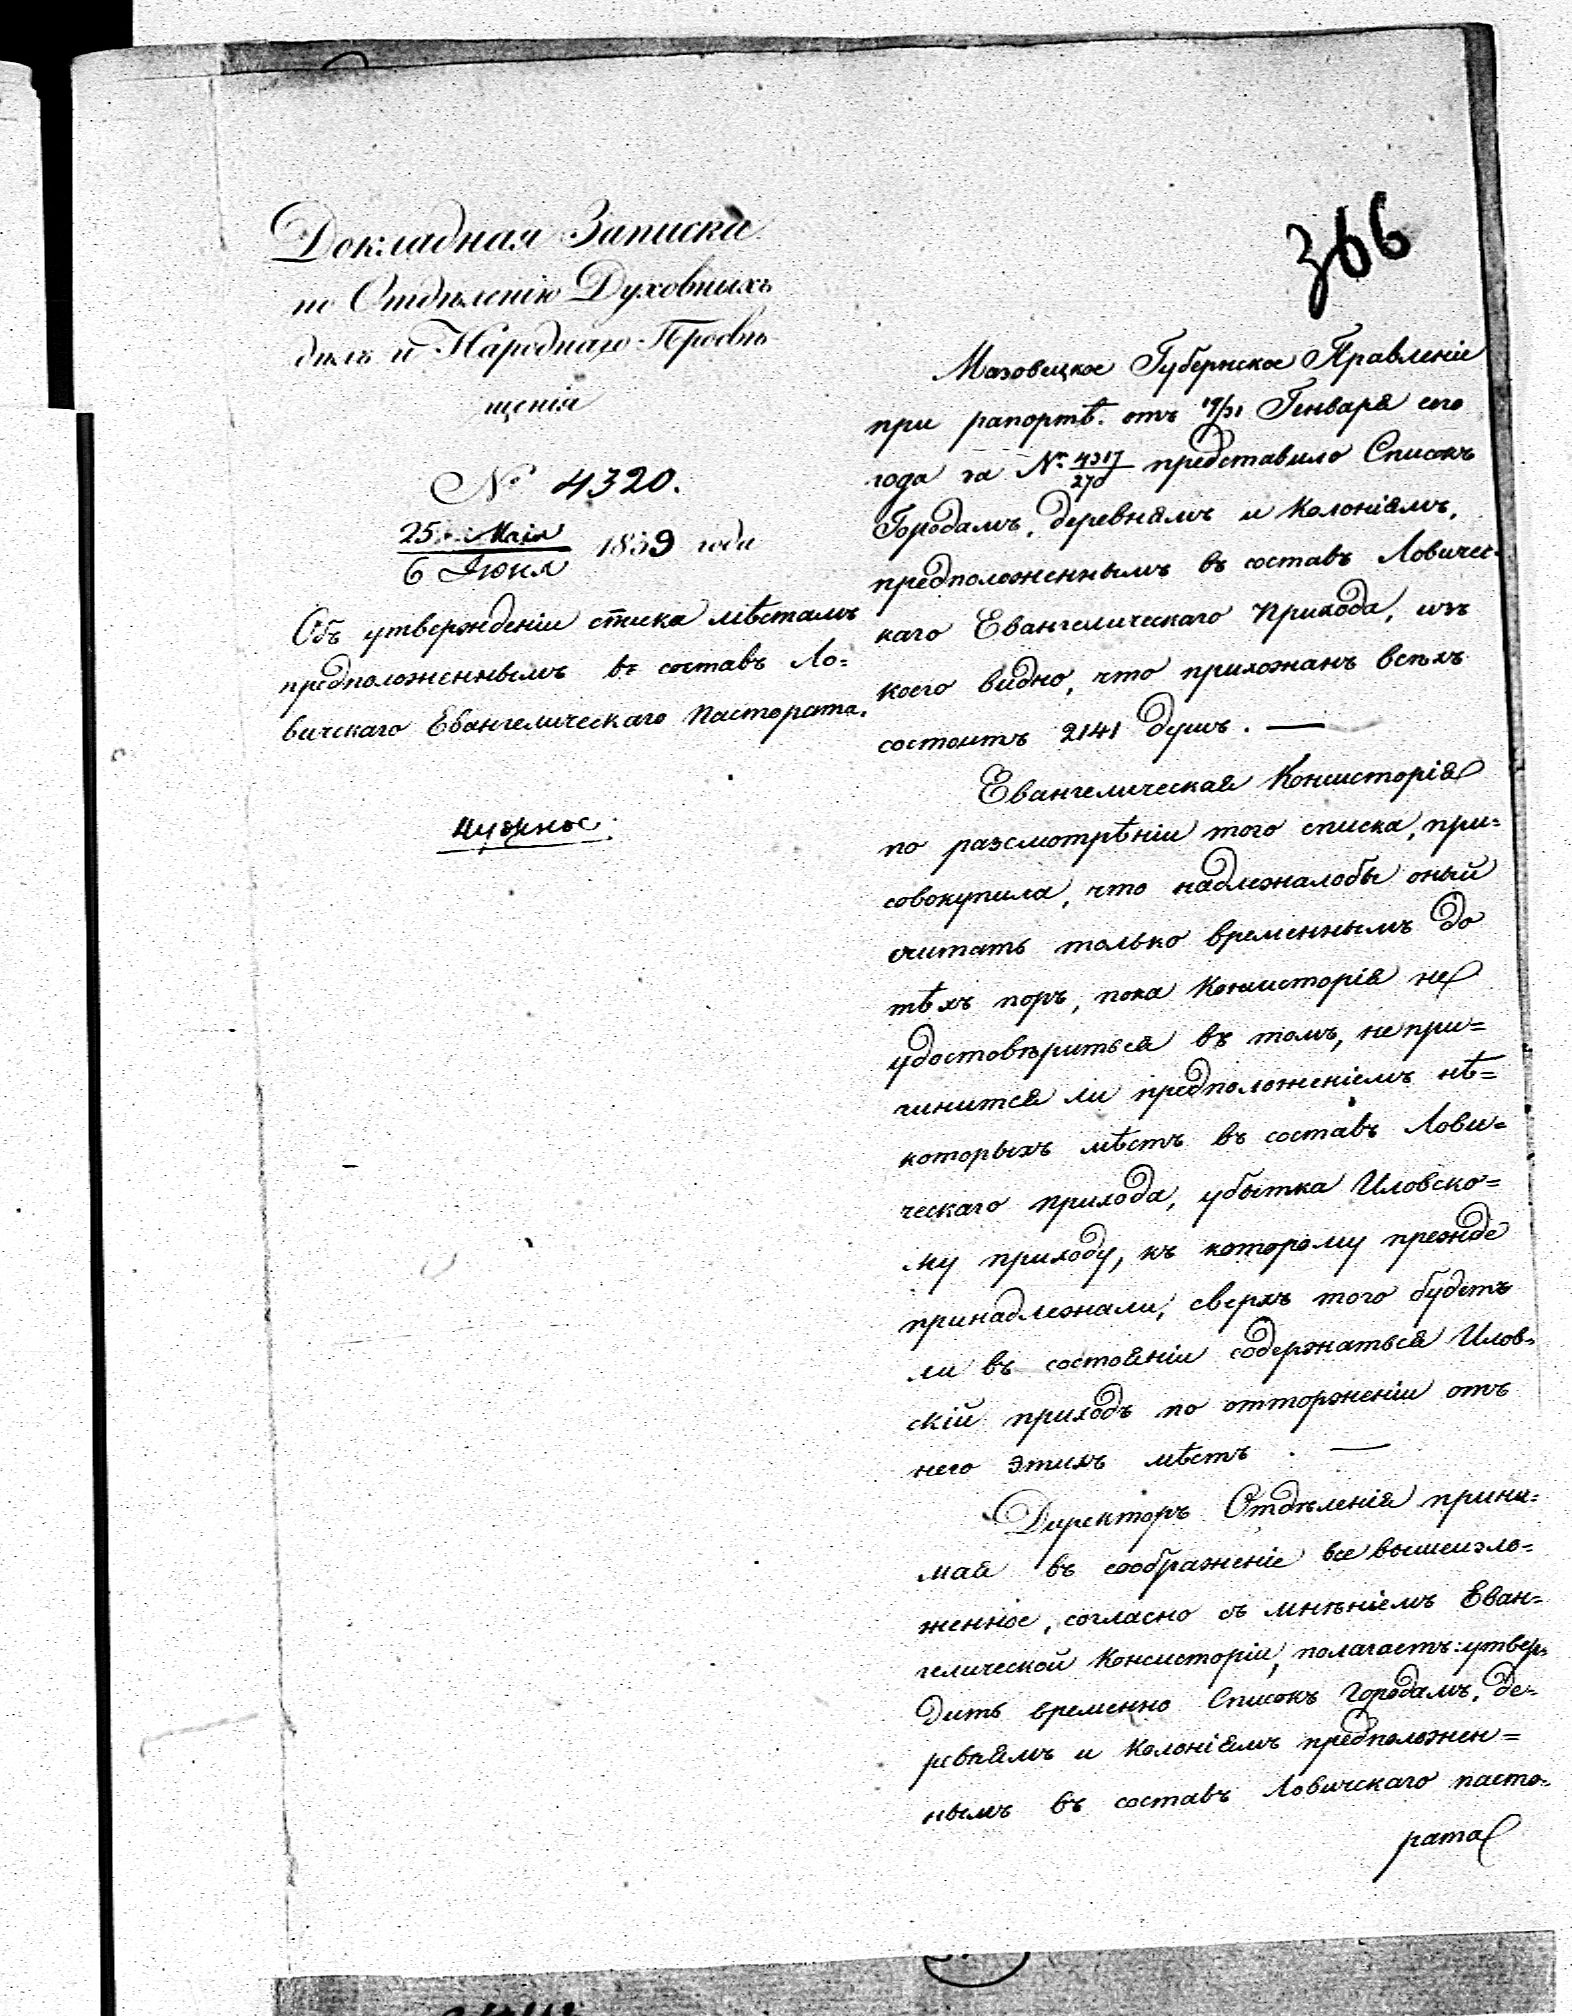 366
Докладная Записка
по Отдѣленію Духовныхъ
дѣлъ и Народнаго Просвѣ
щенія
№ 4320.
25 Мая
6 Іюня 1839 года
Объ утвержденіи списка мѣстамъ
предположеннымъ въ составъ Ло=
вичскаго Евангелическаго Пастората.
Мазовецкое Губернское Правленіе
при рапортѣ отъ 19/31 Генваря сего
года за № 4317/270 представило Списокъ
Городамъ, деревнямъ и Колоніямъ,
предположеннымъ въ составъ Ловичес-
каго Евангелическаго Прихода, изъ
коего видно, что прихожанъ всѣхъ
состоитъ 2141 душъ. —
Евангелическая Консисторія
по разсмотрѣніи того списка, при=
совокупила, что надлежалобы оный
считать только временнымъ до
тѣхъ поръ, пока Консисторія не
удостовѣриться въ томъ, непри=
чинится ли предположеніемъ нѣ=
которыхъ мѣстъ въ составъ Лови=
ческаго прихода, убытка Иловско=
му приходу, къ которому прежде
принадлежали, сверхъ того будетъ
ли въ состояніи содержаться Илов-
скій приходъ по отторженіи отъ
него этихъ мѣстъ. —
Директоръ Отдѣленія прини=
мая въ соображеніе все вышеизло=
женное, согласно съ мнѣніемъ Еван=
гелической Консисторіи, полагаетъ: утвер-
дить временно Списокъ Городамъ, де-
ревнямъ и Колоніямъ предположен=
нымъ въ составъ Ловичскаго пасто-
рата